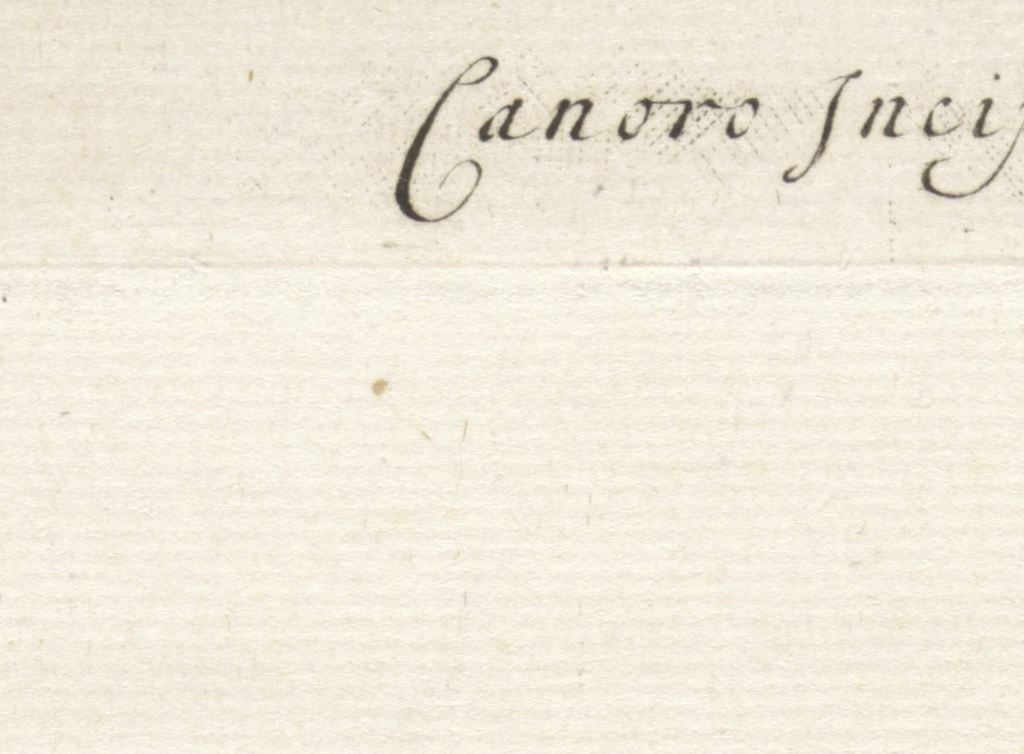 Canoro Incis